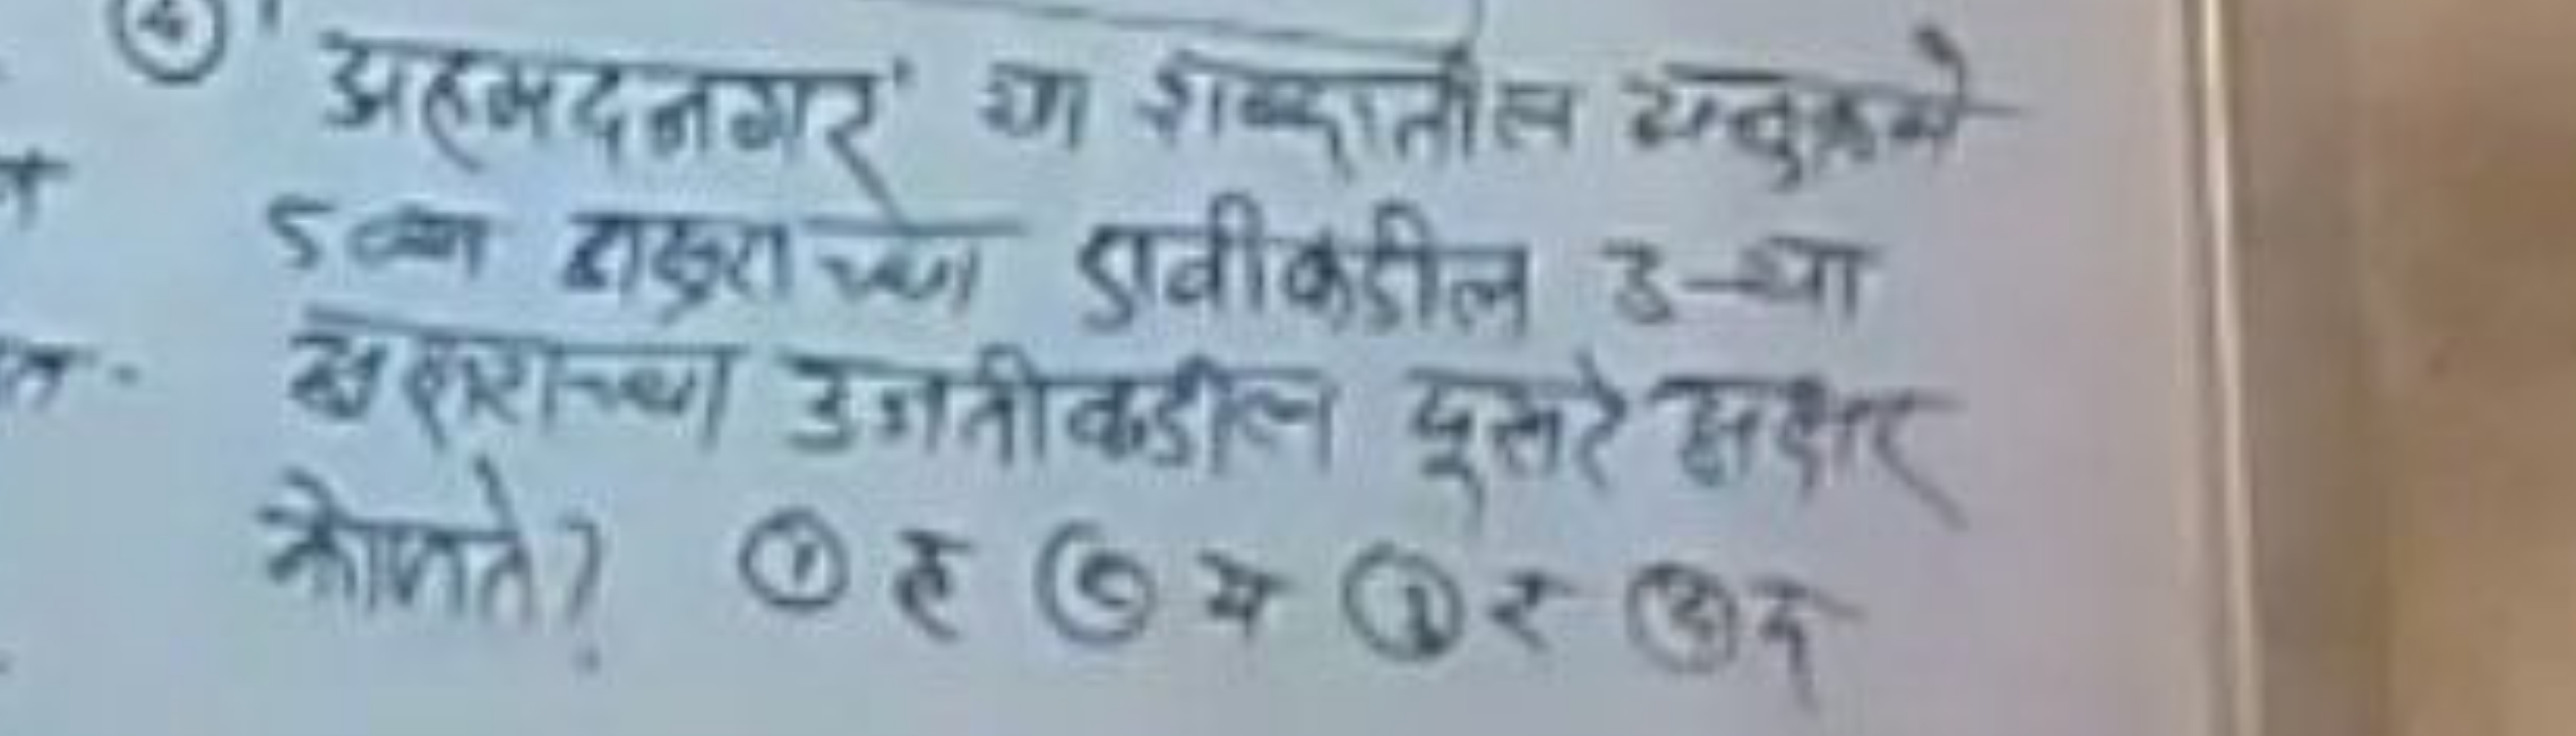 'अहमदनगर' या शब्दातील अनुक्रमे
5 व्या अक्षराच्या डावीकडील 3-या
अक्षराच्या उजवीकडील दूसरे अक्षर
कोणते? ① ह ② म ③ र ④ द